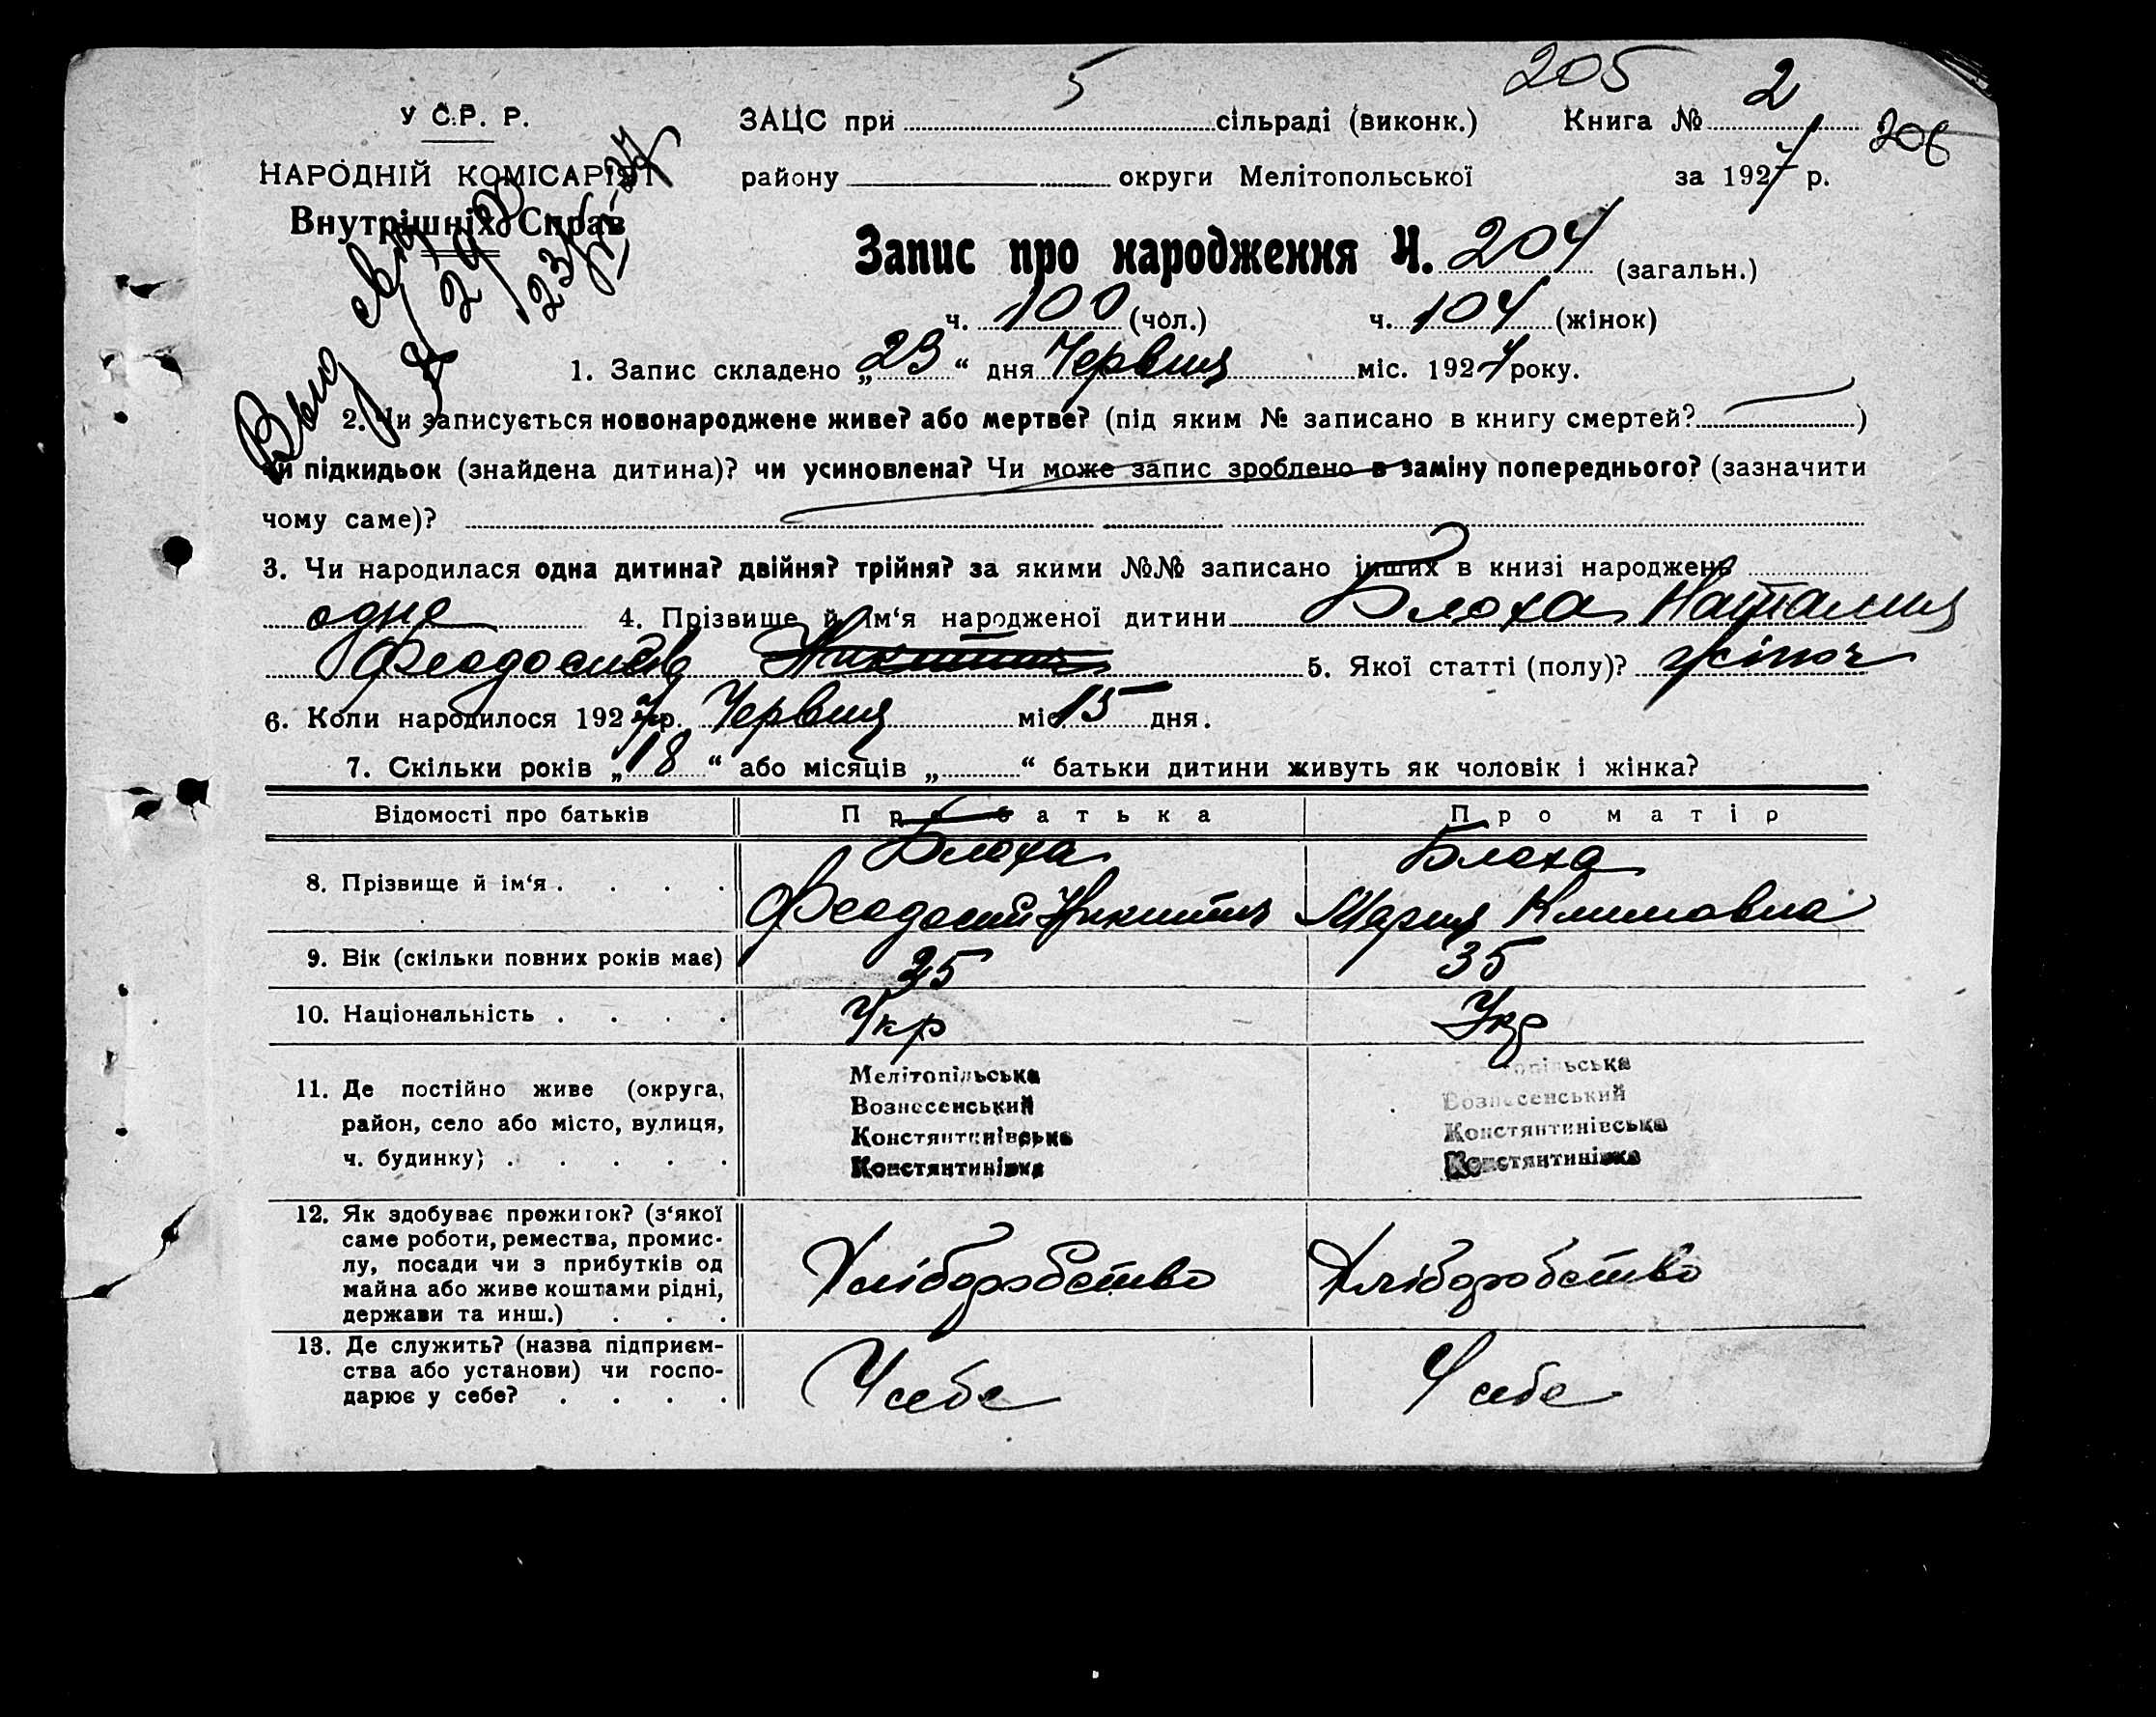 205
У С.Р. Р. ЗАЦС при 5 сільраді (виконк.) Книга № 2
206
НАРОДНІЙ КОМІСАРІЯТ району округи Мелітопольської за 1927 р.
Внутрішніх Справ
Запис про народження Ч. 204 (загальн.)
ч. 100 (чол.) ч. 104 (жінок)
1. Запис складено „23“ дня Червня міс. 1927 року.
2. Чи записується новонароджене живе? або мертве? (під яким № записано в книгу смертей? )
чи підкидьок (знайдена дитина)? чи усиновлена? Чи може запис зроблено в заміну попереднього? (зазначити
чому саме)?
3. Чи народилася одна дитина? двійня? трійня? за якими №№ записано інших в книзі народжень
одне 4. Прізвище й ім‘я народженої дитини Блоха Наталия
Феодосиев Никитич 5. Якої статті (полу)? жіноч
6. Коли народилося 1927 р. Червня міс. 15 дня.
7. Скільки років „18“ або місяців „ “ батьки дитини живуть як чоловік і жінка?
Відомості про батьків Про батька Про матір
8. Прізвище й ім‘я . . . . Блоха Блоха
Феодосий Никитич Мария Климовна
9. Вік (скільки повних років має) 35 35
10. Національність . . . . Укр Укр
11. Де постійно живе (округа, Мелітопільська Мелітопільська
район, село або місто, вулиця, Вознесенський Вознесенський
ч. будинку) . . . . . Константинівська Константинівська
Константинівка Константинівка
12. Як здобуває прожиток? (з‘якої
саме роботи, ремества, промис-
лу, посади чи з прибутків од Хліборобство Хліборобство
майна або живе коштами рідні,
держави та инш.) . . .
13. Де служить? (назва підприєм-
ства або установи) чи госпо- У себе У себе
дарює у себе? . . . .